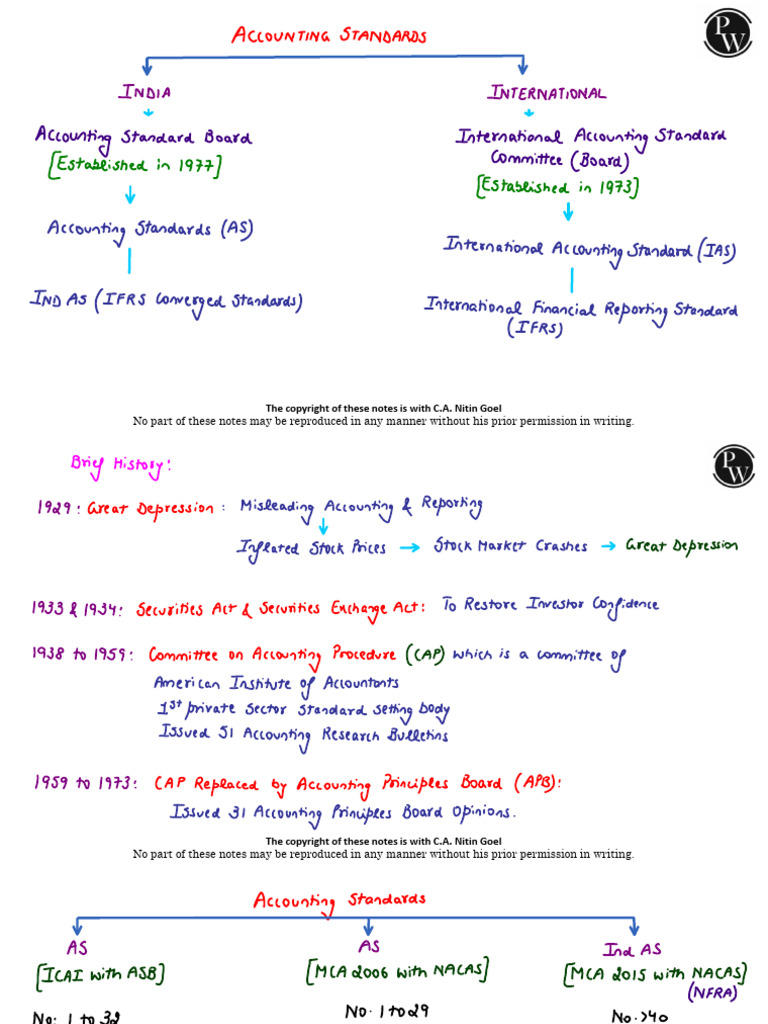 ACCOUNTING STANDARDS
PW
INDIA
INTERNATIONAL
Accounting Standard Board
[Established in 1977]
International Accounting Standard
Committee (Board)
[Established in 1973]
Accounting Standards (AS)
International Accounting Standard (IAS)
IND AS (IFRS Converged Standards)
International Financial Reporting Standard
(IFRS)
The copyright of these notes is with C.A. Nitin Goel
No part of these notes may be reproduced in any manner without his prior permission in writing.
PW
Brief History:
1929: Great Depression: Misleading Accounting & Reporting
Inflated Stock Prices → Stock Market Crashes → Great Depression
1933 & 1934: Securities Act & Securities Exchange Act: To Restore Investor Confidence
1938 to 1959: Committee on Accounting Procedure (CAP) which is a committee of
American Institute of Accountants
1st private Sector Standard setting body
Issued 51 Accounting Research Bulletins
1959 to 1973: CAP Replaced by Accounting Principles Board (APB):
Issued 31 Accounting Principles Board Opinions.
The copyright of these notes is with C.A. Nitin Goel
No part of these notes may be reproduced in any manner without his prior permission in writing.
Accounting Standards
AS
AS
Ind AS
[ICAI with ASB]
[MCA 2006 with NACAS]
[MCA 2015 with NACAS]
(NFRA)
No: 1 to 32
No. 1 to 29
No. >40